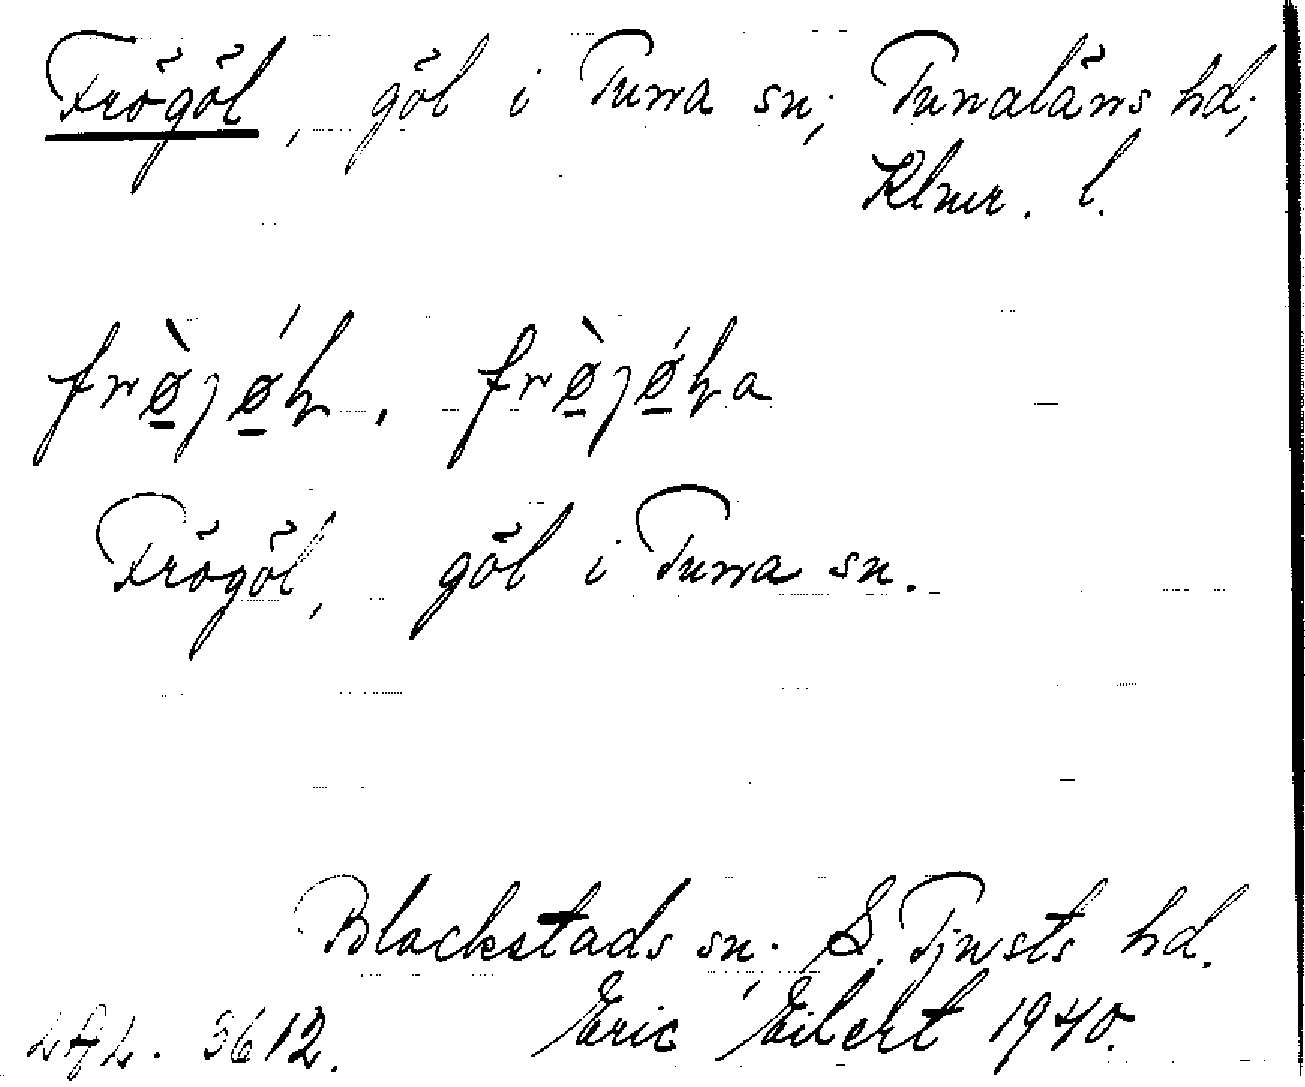 Frögöl, göl i Tuna sn; Tunaläns hd;
Klmr. l.
frø̀jǿḷ, frø̀jǿḷa
Frögöl, göl i Tuna sn.
Blackstads sn; S. Tjusts hd.
Eric Eilert 1940.
5612.